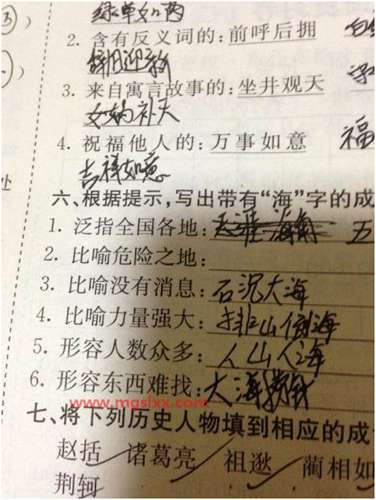 绿草如茵
2. 含有反义词的: 前呼后拥
辞旧迎新
3. 来自寓言故事的: 坐井观天
女娲补天
4. 祝福他人的: 万事如意 福
吉祥如意
处
六、根据提示,写出带有“海”字的成
1. 泛指全国各地: 五
2. 比喻危险之地:
3. 比喻没有消息: 石沉大海
4. 比喻力量强大: 排山倒海
5. 形容人数众多: 人山人海
6. 形容东西难找: 大海捞针
www.mgslxx.com
七、将下列历史人物填到相应的成
赵括 诸葛亮 祖逖 蔺相如
荆轲